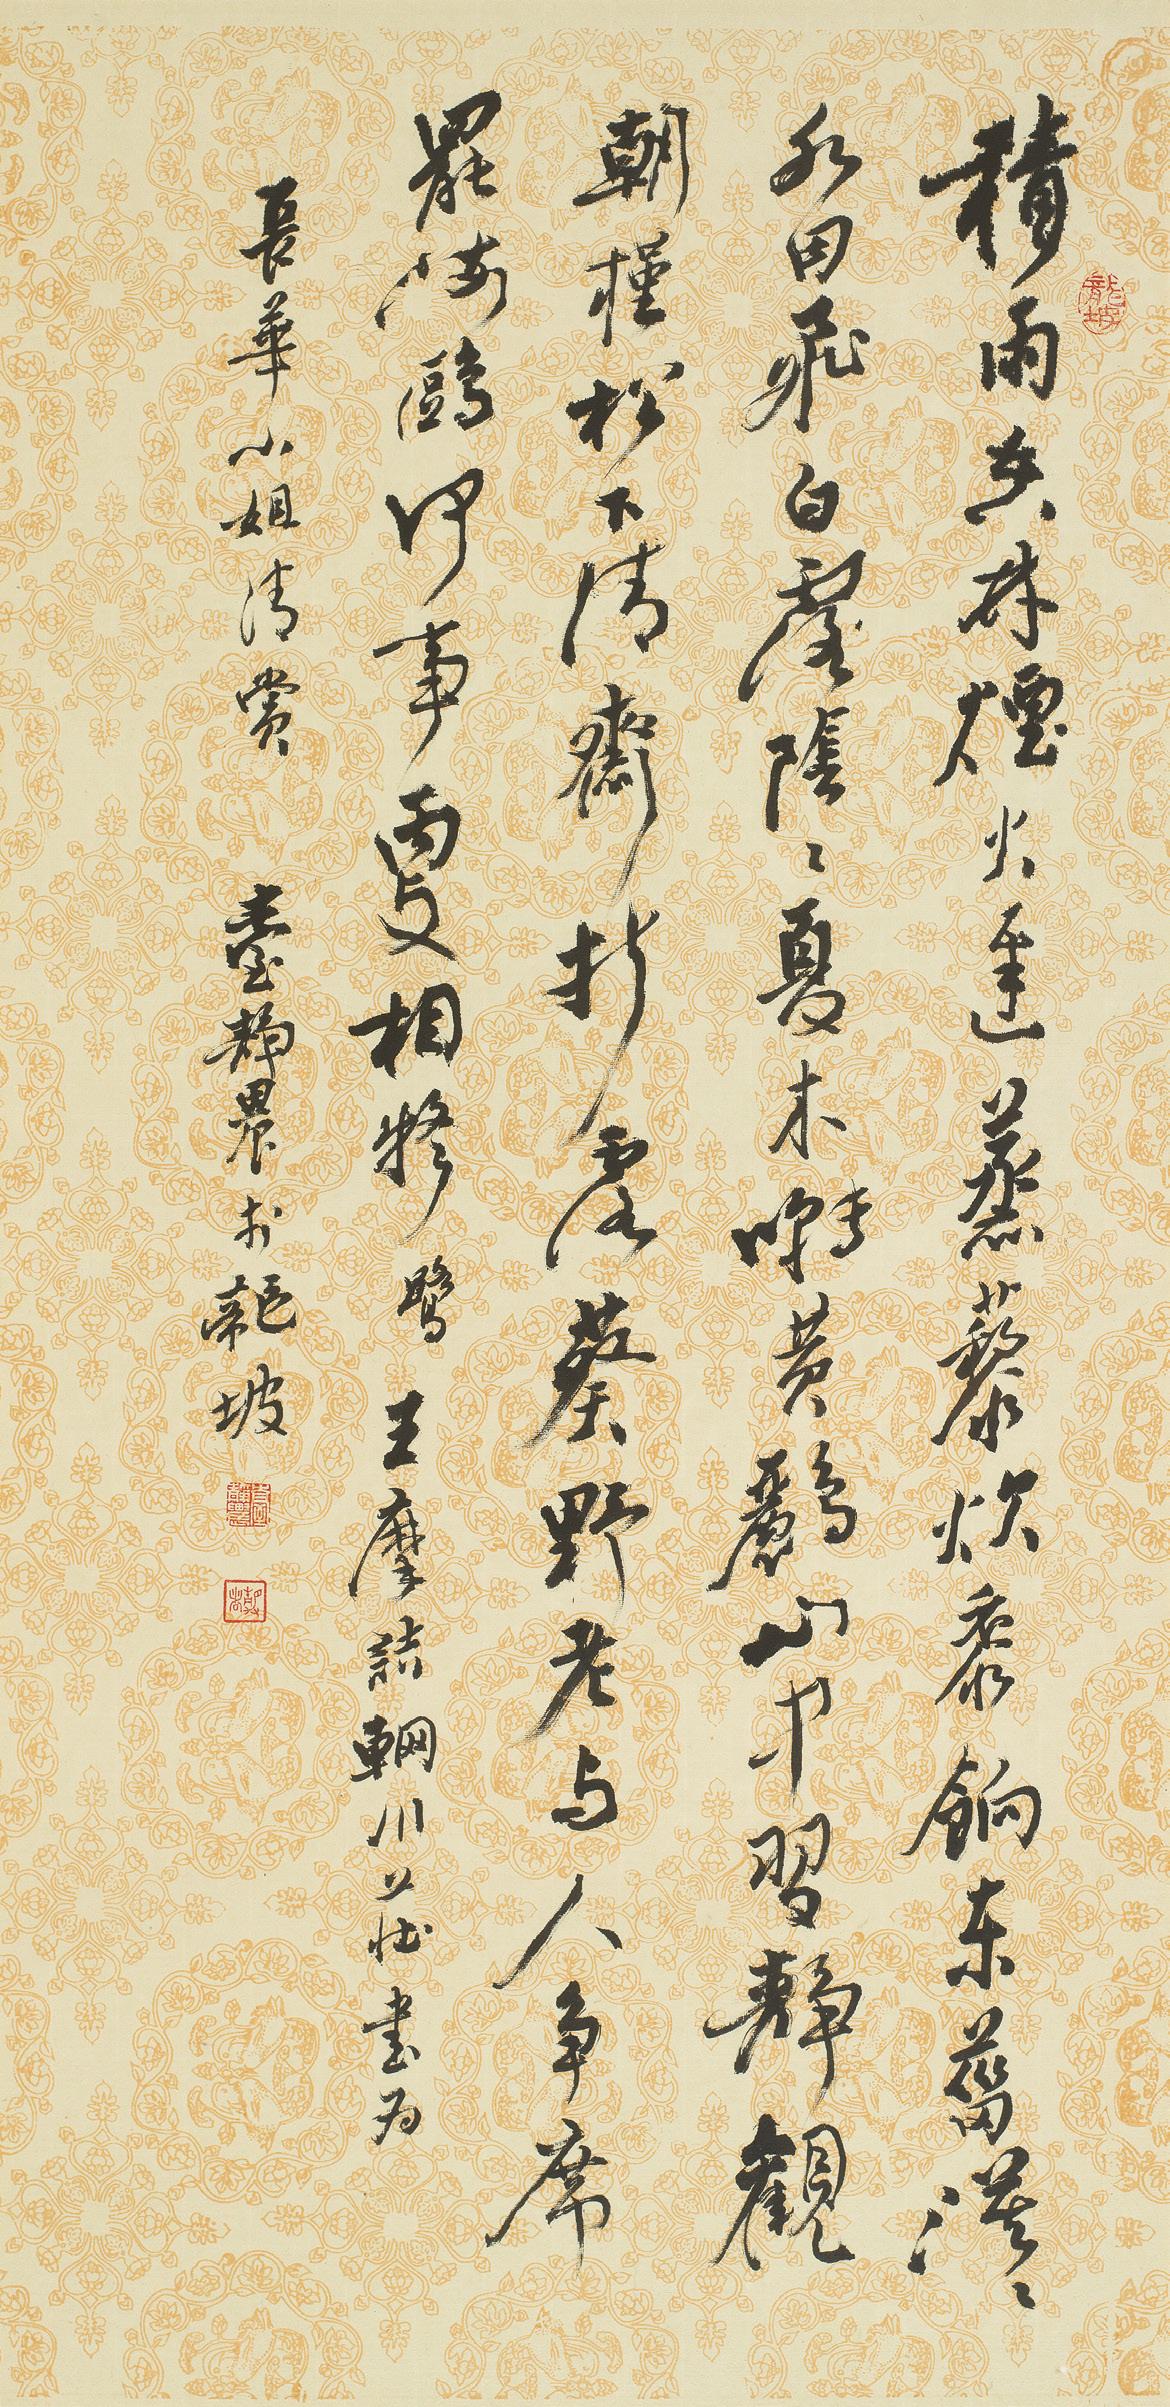 積雨空林煙火遲蒸藜炊黍餉東菑漠〻
水田飛白鷺陰〻夏木囀黃鸝山中習靜觀
朝槿松下清齋折露葵野老与人爭席
罷海鷗何事更相疑 鷺 王摩詰輞川莊書為
長華小姐清賞 臺靜農於龍坡
龍坡
臺靜農